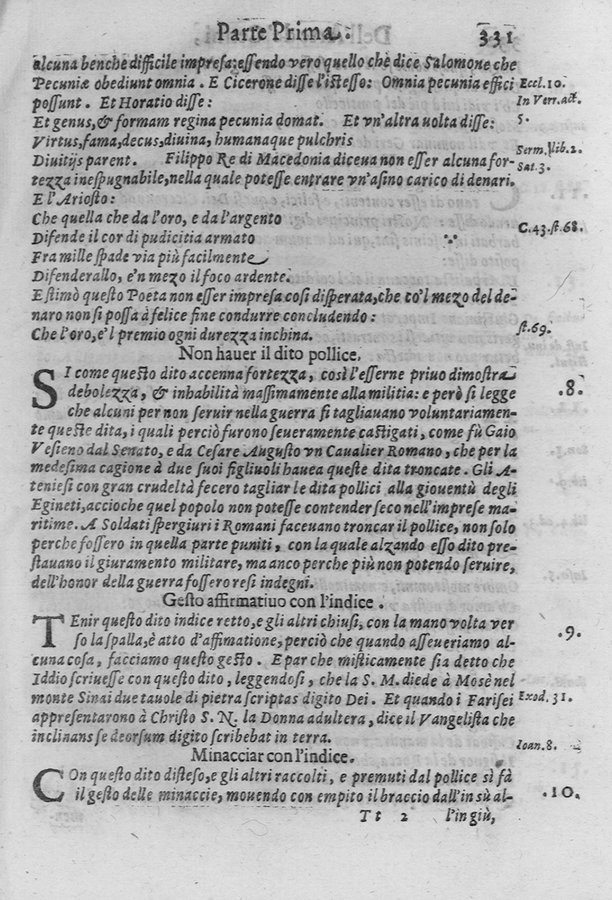 Parte Prima. 331
alcuna benche difficile impresa: essendo vero quello chè dice Salomone che
Pecuniæ obediunt omnia. E Cicerone disse l'istesso: Omnia pecunia effici Eccl. 10.
possunt. Et Horatio disse: In Verr. act.
Et genus, & formam regina pecunia domat. Et vn'altra uolta disse: 5.
Virtus, fama, decus, diuina, humanaque pulchris
Diuitijs parent. Filippo Re di Macedonia diceua non esser alcuna for- Serm. lib. 2.
tezza inespugnabile, nella quale potesse entrare vn'asino carico di denari. Sat. 3.
E l'Ariosto:
Che quella che da l'oro, e da l'argento
Difende il cor di pudicitia armato C. 43. st. 68.
Fra mille spade via più facilmente
Difenderallo, e'n mezo il foco ardente.
E stimò questo Poeta non esser impresa cosi disperata, che co'l mezo del de-
naro non si possa à felice fine condurre concludendo:
Che l'oro, e'l premio ogni durezza inchina. st. 69.
Non hauer il dito pollice.
SI come questo dito accenna fortezza, così l'esserne priuo dimostra .8.
debolezza, & inhabilità massimamente alla militia: e però si legge
che alcuni per non seruir nella guerra si tagliauano voluntariamen-
te queste dita, i quali perciò furono seueramente castigati, come fù Gaio
Vesieno dal Senato, e da Cesare Augusto vn Caualier Romano, che per la
medesima cagione à due suoi figliuoli hauea queste dita troncate. Gli A-
teniesi con gran crudeltà fecero tagliar le dita pollici alla giouentù degli
Egineti, accioche quel popolo non potesse contender seco nell'imprese ma-
ritime. A Soldati spergiuri i Romani faceuano troncar il pollice, non solo
perche fossero in quella parte puniti, con la quale alzando esso dito pre-
stauano il giuramento militare, ma anco perche più non potendo seruire,
dell'honor della guerra fossero resi indegni.
Gesto affirmatiuo con l'indice.
TEnir questo dito indice retto, e gli altri chiusi, con la mano volta ver .9.
so la spalla, è atto d'affimatione, perciò che quando asseueriamo al-
cuna cosa, facciamo questo gesto. E par che misticamente sia detto che
Iddio scriuesse con questo dito, leggendosi, che la S. M. diede à Mosè nel
monte Sinai due tauole di pietra scriptas digito Dei. Et quando i Farisei Exod. 31.
appresentarono à Christo S. N. la Donna adultera, dice il Vangelista che
inclinans se deorsum digito scribebat in terra. Ioan. 8.
Minacciar con l'indice.
COn questo dito disteso, e gli altri raccolti, e premuti dal pollice si fà
il gesto delle minaccie, mouendo con empito il braccio dall'in sù al- .10.
Tt 2 l'in giù,